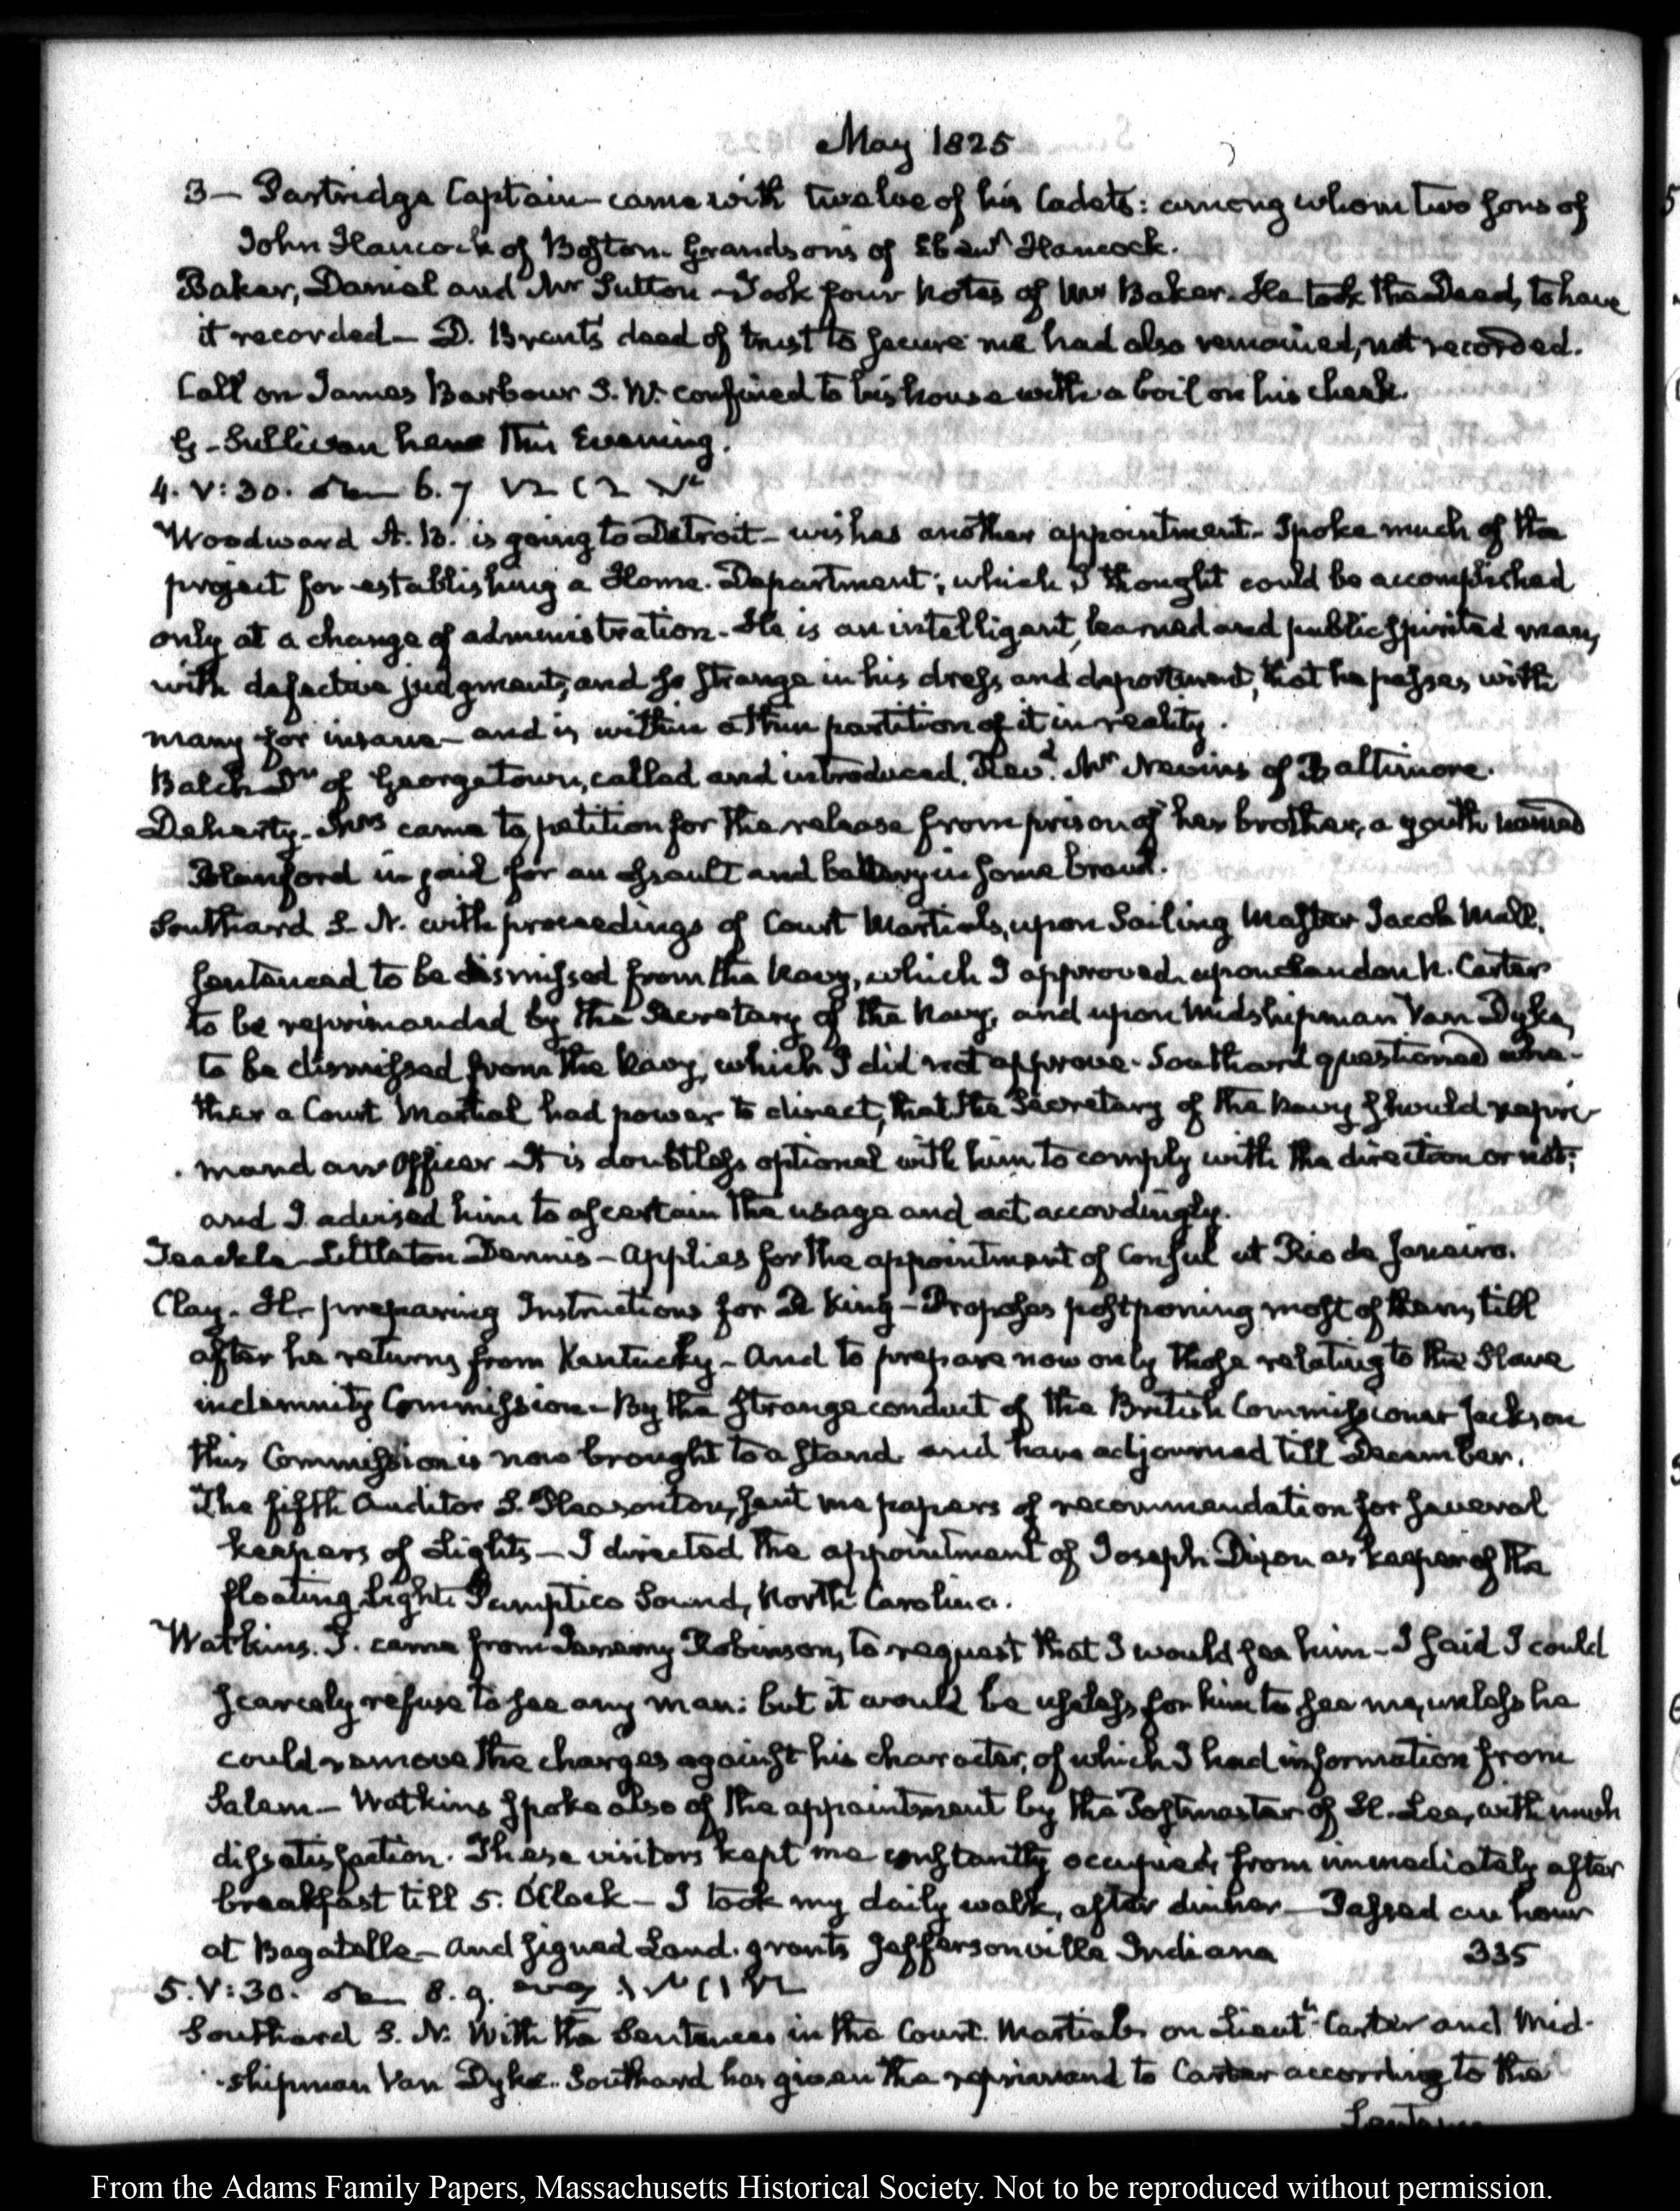 May 1825
3 — Partridge Captain — came with twelve of his Cadets: among whom two sons of
John Hancock of Boston Grandsons of Ebenr Hancock.
Baker, Daniel and Mr Sutton — Took four notes of Mr Baker. He took the Deed, to have
it recorded — D. Brent's deed of trust to secure me had also remained, not recorded.
Call on James Barbour S. W. confined to his house with a boil on his cheek.
G. Sullivan here this Evening.
4. V: 30. 6. 7
Woodward A. B. is going to Detroit — wishes another appointment. Spoke much of the
project for establishing a Home Department; which I thought could be accomplished
only at a change of administration. He is an intelligent, learned and public spirited man,
with defective judgment; and so strange in his dress and deportment, that he passes with
many for insane — and is within a thin partition of it in reality.
Balch Dr of Georgetown, called and introduced Revd. Mr Nevins of Baltimore.
Deherty. Mrs came to petition for the release from prison of her brother, a youth named
Blanford in gaol for an assault and battery in some brawl.
Southard S. N. with proceedings of Court Martials, upon Sailing Master Jacob Mull,
sentenced to be dismissed from the Navy, which I approved. upon Landon N. Carter
to be reprimanded by the Secretary of the Navy, and upon Midshipman Van Dyke,
to be dismissed from the Navy, which I did not approve. Southard questioned whe-
ther a Court Martial had power to direct, that the Secretary of the Navy should repri-
mand an Officer. It is doubtless optional with him to comply with the direction or not;
and I advised him to ascertain the usage and act accordingly.
Teackle Littleton Dennis — applies for the appointment of Consul at Rio de Janeiro.
Clay. H. preparing Instructions for R King — Proposes postponing most of them, till
after he returns from Kentucky — And to prepare now only those relating to the Slave
indemnity Commission — By the strange conduct of the British Commissioner Jackson
this Commission is now brought to a stand and have adjourned till December.
The fifth Auditor S. Pleasonton, sent me papers of recommendation for several
keepers of Lights — I directed the appointment of Joseph Dixon as keeper of the
floating Light Pamptico Sound, North Carolina.
Watkins. T. came from Jeremy Robinson, to request that I would see him — I said I could
scarcely refuse to see any man: but it would be useless for him to see me, unless he
could remove the charges against his character, of which I had information from
Salem — Watkins spoke also of the appointment by the Postmaster of H. Lee, with much
dissatisfaction. These visitors kept me constantly occupied, from immediately after
breakfast till 5. O'Clock — I took my daily walk, after dinner — Passed an hour
at Bagatelle — and signed Land. grants Jeffersonville Indiana 335
5. V: 30. 8. 9.
Southard S. N. With the Sentences in the Court Martials on Lieutt. Carter and Mid-
shipman Van Dyke. Southard has given the reprimand to Carter according to the